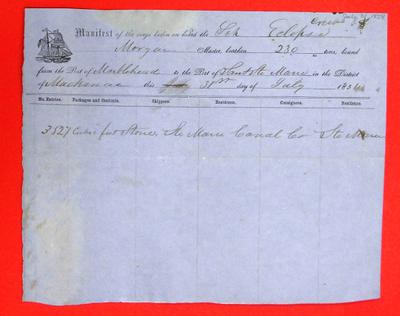 Crew 8
July 31, 1854
Manifest of the cargo taken on board the Sch Eclipse
Morgan Master, burthen 230 tons, bound
from the Port of Marblehead to the Port of Saut Ste Marie in the District
of Mackinac this 31st day of July 1854
No. Entries. Packages and Contents. Shippers. Residence. Consignees. Residence.
3527 Cubic feet Stone. Ste Marie Canal Co Ste Marie